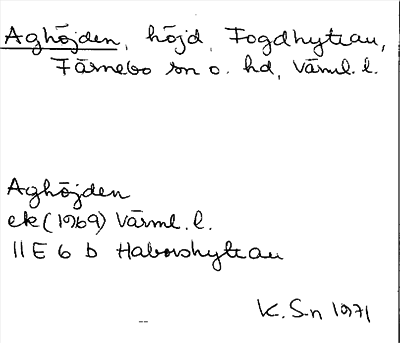 Aghöjden, höjd, Fogdhyttan,
Färnebo sn o. hd, Värml. l.
Aghöjden
ek (1969) Värml. l.
11 E 6 b Haborshyttan
K. Sn 1971